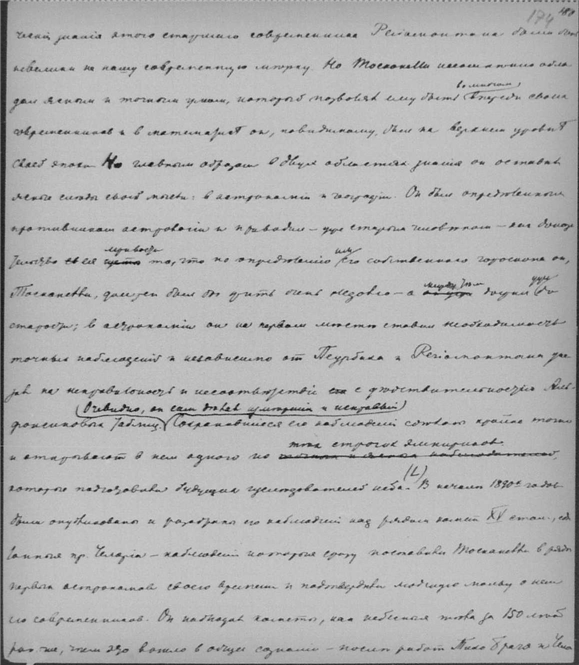 174
ческiя знанiя этого старшего современника Регiомонтана были очень
невелики на нашу современную мерку. Но Тосканелли несомненно обла-
дал ясным и точным умом, который позволял ему быть во многом впереди своих
современников и в математике он, по-видимому, был на верхнем уровне
своей эпохи. Но главным образом в двух областях знания он оставил
ясные следы своей мысли: в астрономии и географии. Он был определенным
противником астрологии и приводил – уже старым человеком – как доказа-
тельство то, что по определению им его собственного гороскопа он,
Тосканелли, должен был бы жить очень недолго – а между тем дожил до
старости; в астрономии он на первом месте ставил необходимость
точных наблюдений и независимо от Пурбаха и Регiомонтана ука-
зал на неправильность и несоответствие с действительностью Аль-
фонсиновых таблиц. (Очевидно, он сам делал измерения и исправлял)
Сохранившиеся его наблюдения сделаны крайне точно
и открывают в нем одного из тех строгих эмпириков
которые подготовили будущих исследователей неба. (1) В начале 1890х годов
были опубликованы и разобраны его наблюдения над рядом комет XV стол., сде-
ланные пр. Челорiа – наблюдения которые сразу поставили Тосканелли в ряды
первых астрономов своего времени и подтвердили молчную молву о нем
его современников. Он наблюдал кометы, как небесные тела за 150 лет
раньше, чем это вошло в общее сознание – после работ Тихо Браге и